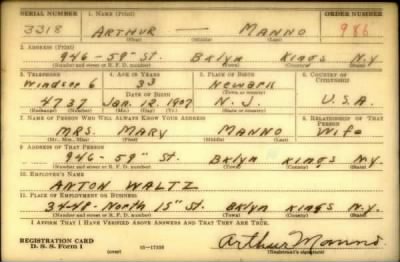 SERIAL NUMBER 1. NAME (Print) ORDER NUMBER
3318 ARTHUR — MANNO 986
(First) (Middle) (Last)
2. ADDRESS (Print)
946 - 59th ST. BKLYN KINGS N.Y.
(Number and street or R. F. D. number) (Town) (County) (State)
3. TELEPHONE 4. AGE IN YEARS 5. PLACE OF BIRTH 6. COUNTRY OF CITIZENSHIP
WINDSOR 6 33 NEWARK
DATE OF BIRTH
4737 JAN. 12, 1907 N. J. U.S.A.
(Exchange) (Number) (Mo.) (Day) (Yr.) (State or country)
7. NAME OF PERSON WHO WILL ALWAYS KNOW YOUR ADDRESS 8. RELATIONSHIP OF THAT PERSON
MRS. MARY MANNO Wife
(Mr., Mrs., Miss) (First) (Middle) (Last)
9. ADDRESS OF THAT PERSON
946 - 59th ST. BKLYN KINGS N.Y.
(Number and street or R. F. D. number) (Town) (County) (State)
10. EMPLOYER'S NAME
ANTON WALTZ
11. PLACE OF EMPLOYMENT OR BUSINESS
34-48-NORTH 15th ST. BKLYN KINGS N.Y.
(Number and street or R. F. D. number) (Town) (County) (State)
I AFFIRM THAT I HAVE VERIFIED ABOVE ANSWERS AND THAT THEY ARE TRUE.
REGISTRATION CARD
D. S. S. Form 1 (over) 16-17105 Arthur Manno
(Registrant's signature)